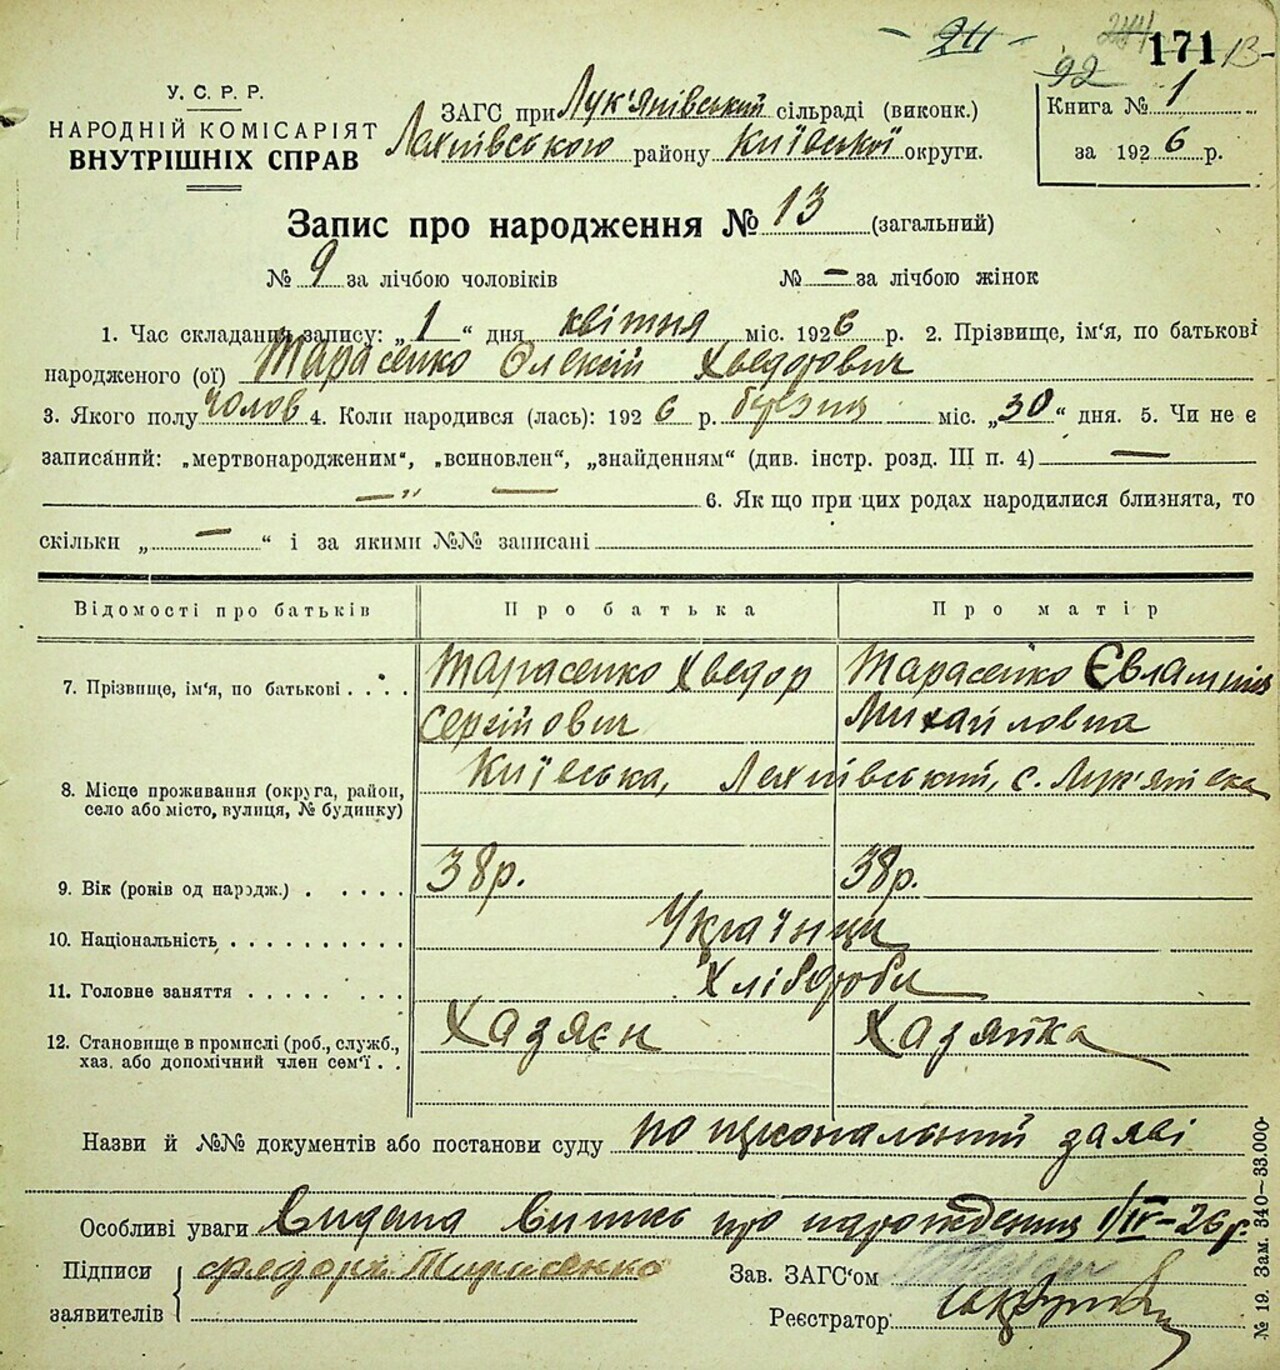 - 211 - 244 171
92
У. С. Р. Р.
НАРОДНІЙ КОМІСАРІЯТ
ВНУТРІШНІХ СПРАВ
ЗАГС при Лук'янівський сільраді (виконк.)
району Київської округи.
Книга № 1
за 1926 р.
Запис про народження № 13 (загальний)
№ 9 за лічбою чоловіків № — за лічбою жінок
1. Час складання запису: „1“ дня квітня міс. 1926 р. 2. Прізвище, ім'я, по батькові
народженого (ої) Тарасенко Олексій Хведорович
3. Якого полу чолов 4. Коли народився (лась): 1926 р. березня міс. „30“ дня. 5. Чи не є
записаний: „мертвонародженим“, „всиновлен“, „знайденням“ (див. інстр. розд. III п. 4) —
— „ — 6. Як що при цих родах народилися близнята, то
скільки „ — “ і за якими №№ записані
Відомості про батьків Про батька Про матір
7. Прізвище, ім'я, по батькові . . . . Тарасенко Хведор Тарасенко Євлампія
Сергійович Михайловна
8. Місце проживання (округа, район, Київська, с. Лук'янівка
село або місто, вулиця, № будинку)
9. Вік (років од народж.) . . . . . 38 р. 38 р.
10. Національність . . . . . . . . . . Українци
11. Головне заняття . . . . . . . . Хлібороби
12. Становище в промислі (роб., служб., Хазяєн Хазяйка
хаз. або допомічний член сем'ї . .
Назви й №№ документів або постанови суду по персональній заяві
Особливі уваги Видана випись про народження 1/IV-26 р.
Підписи Федора Тарасенко Зав. ЗАГС'ом
заявителів Реєстратор:
№ 19. Зам. 340—33.000-